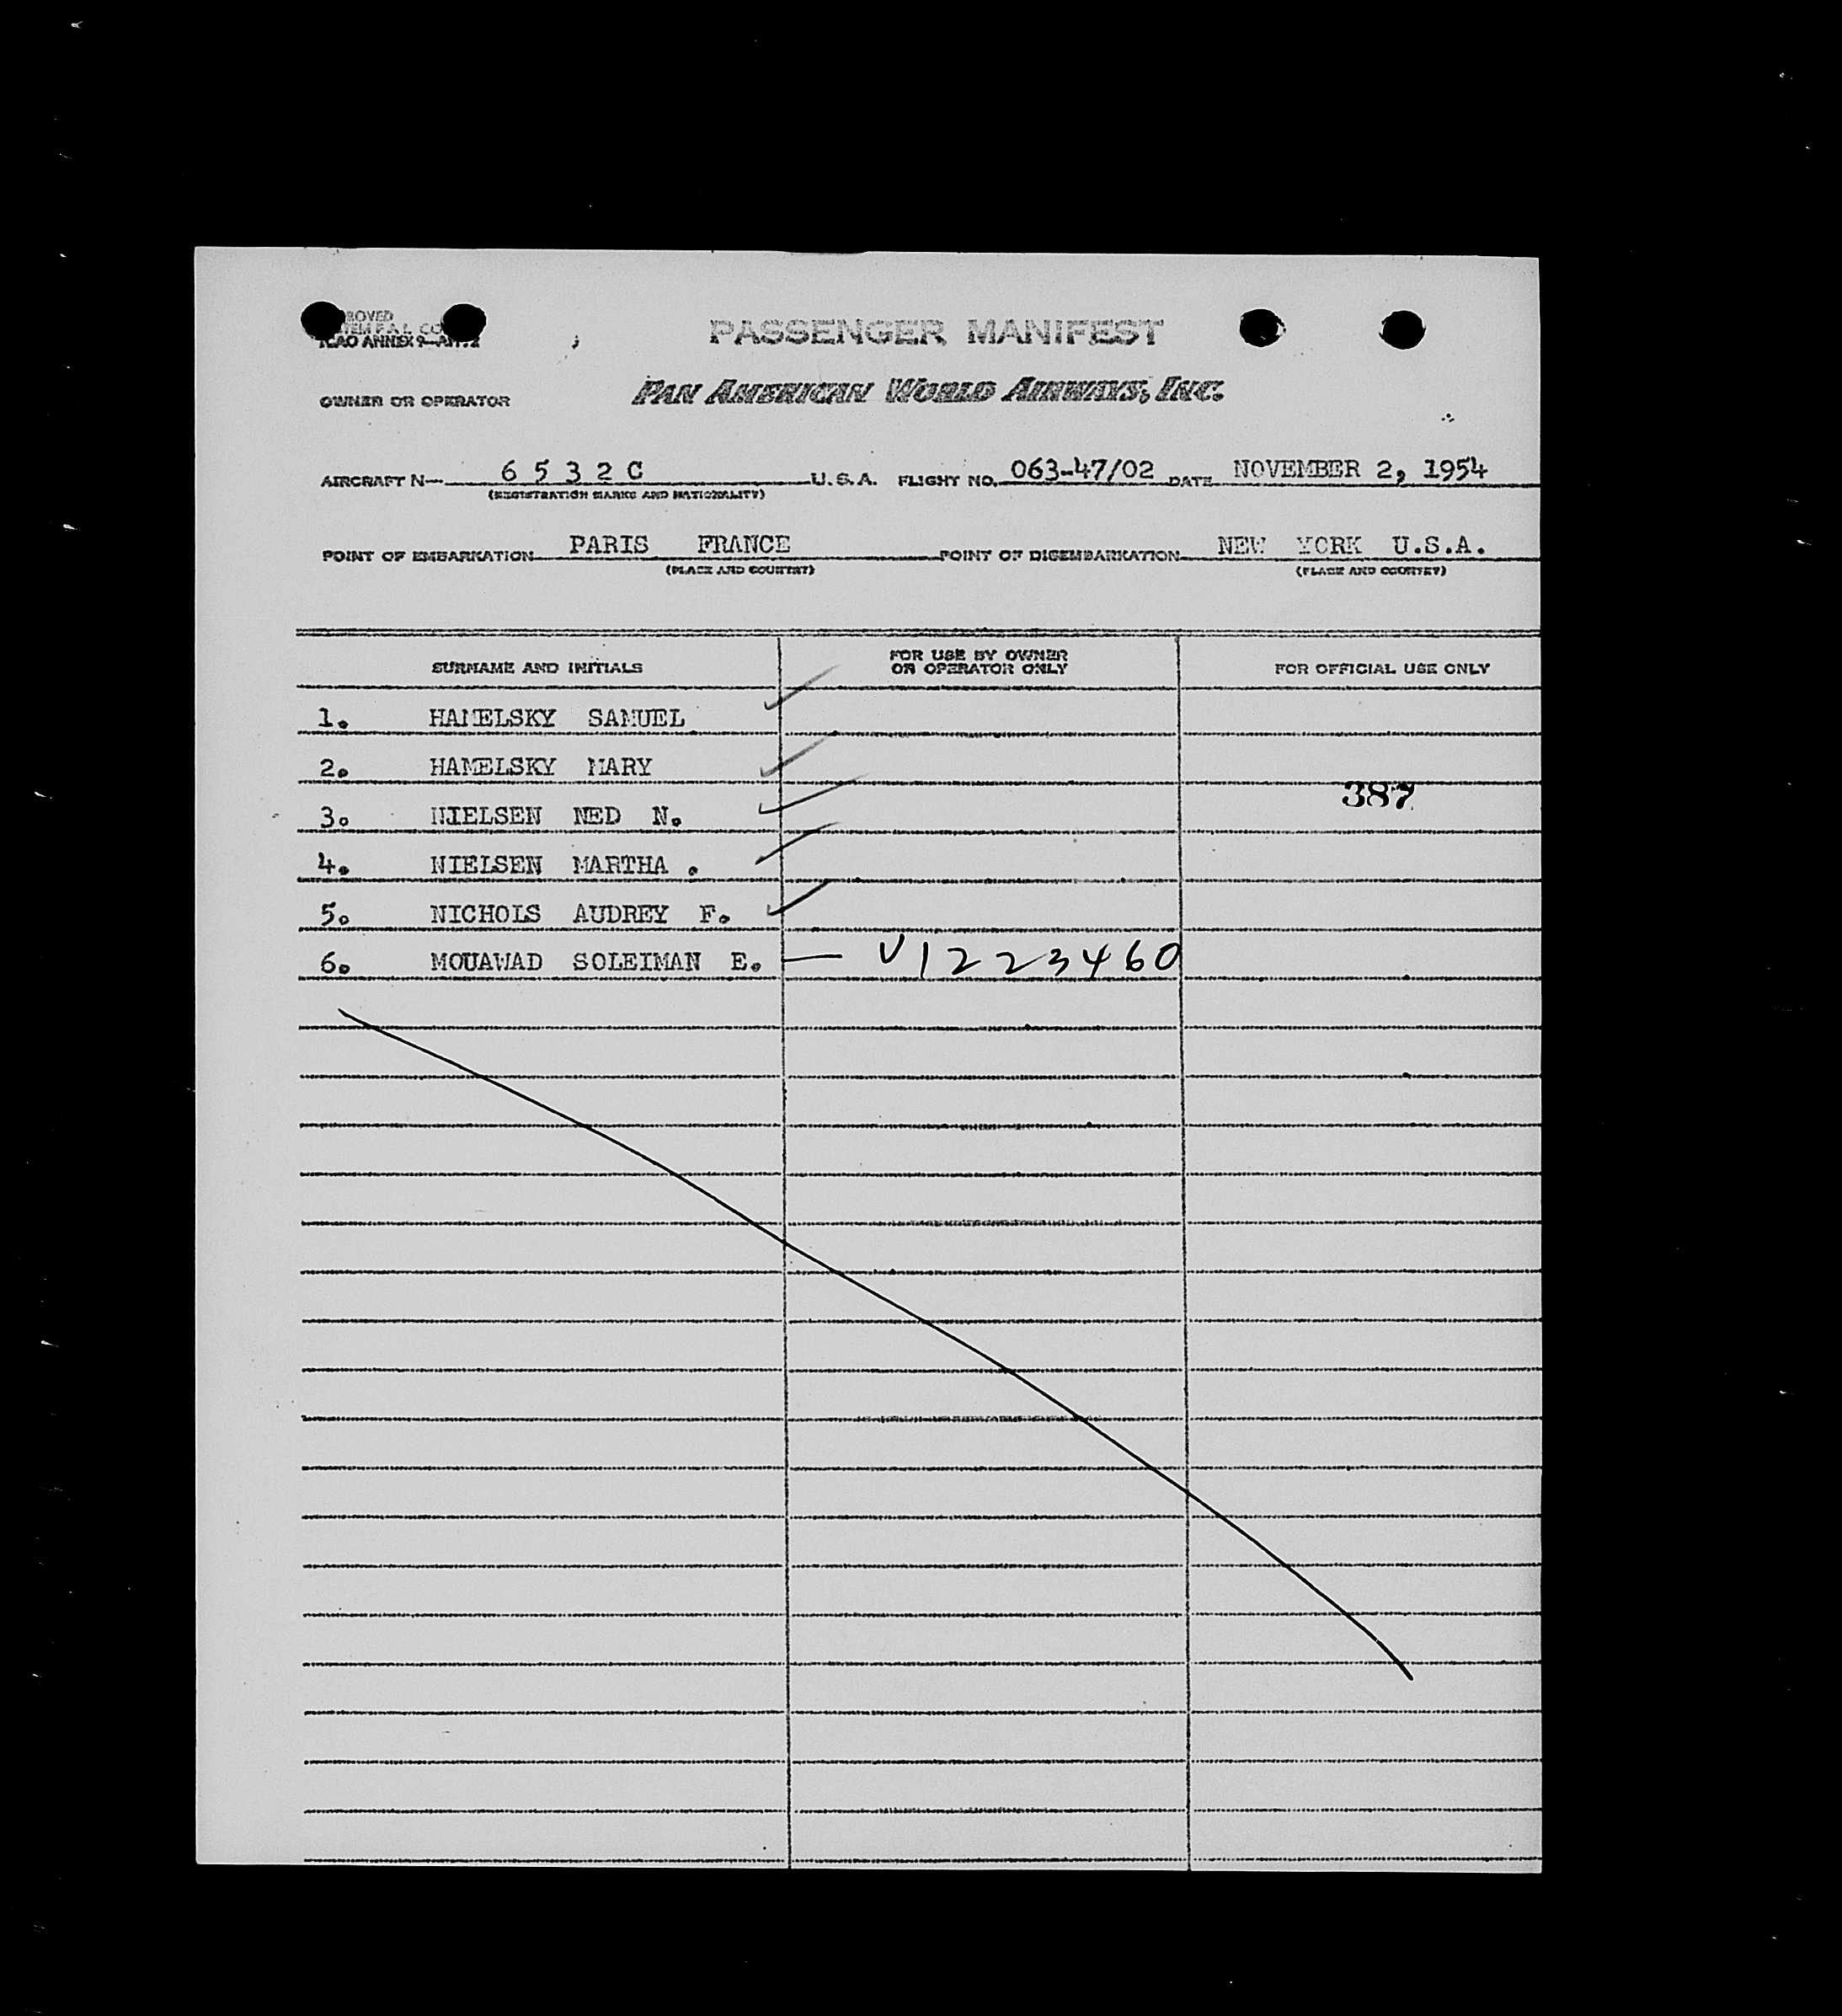 ROVED
TEM F.A.L. CO
ICAO ANNEX 9—
PASSENGER MANIFEST
OWNER OR OPERATOR PAN AMERICAN WORLD AIRWAYS, INC.
AIRCRAFT N— 6532C U.S.A. FLIGHT NO. 063-47/02 DATE NOVEMBER 2, 1954
(REGISTRATION MARKS AND NATIONALITY)
POINT OF EMBARKATION PARIS FRANCE POINT OF DISEMBARKATION NEW YORK U.S.A.
(PLACE AND COUNTRY) (PLACE AND COUNTRY)
SURNAME AND INITIALS FOR USE BY OWNER OR OPERATOR ONLY FOR OFFICIAL USE ONLY
1. HAMELSKY SAMUEL
2. HAMELSKY MARY
387
3. NIELSEN NED N.
4. NIELSEN MARTHA .
5. NICHOLS AUDREY F.
6. MOUAWAD SOLEIMAN E. — V1223460